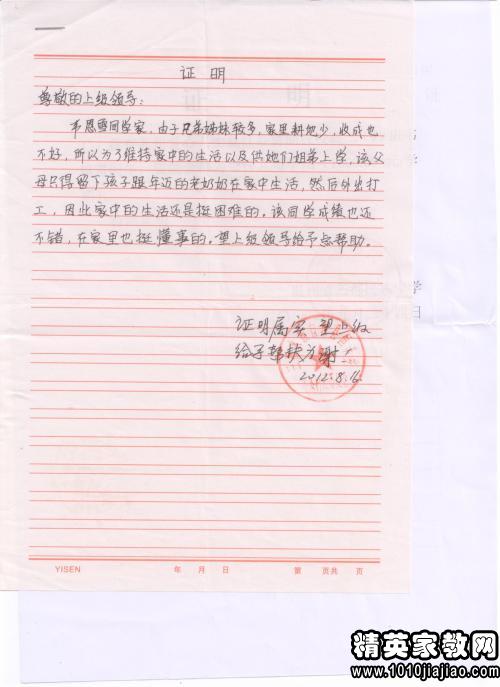 证明
尊敬的上级领导：
韦恩雪同学家，由于兄弟姊妹较多，家里耕地少，收成也
不好，所以为了维持家中的生活以及供她们姐弟上学，该父
母只得留下孩子跟年迈的老奶奶在家中生活，然后外出打
工，因此家中的生活还是挺困难的。该同学成绩也还
不错，在家里也挺懂事的。望上级领导给予点帮助。
证明属实 望上级
给予帮扶为谢！
2012.8.16
YISEN 年 月 日 第 页共 页
精英家教网
www.1010jiajiao.com